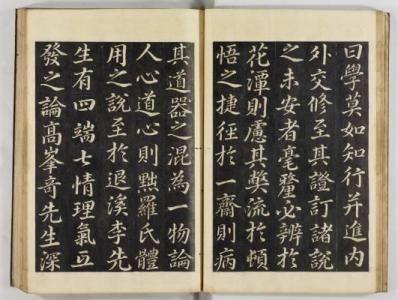 曰學莫如知行并進內
外交修至其證訂諸說
之未安者毫釐必辨於
花潭則慮其獘流於頓
悟之捷徑於一齋則病
其道器之混為一物論
人心道心則黜羅氏體
用之說至於退溪李先
生有四端七情理氣互
發之論高峯奇先生深